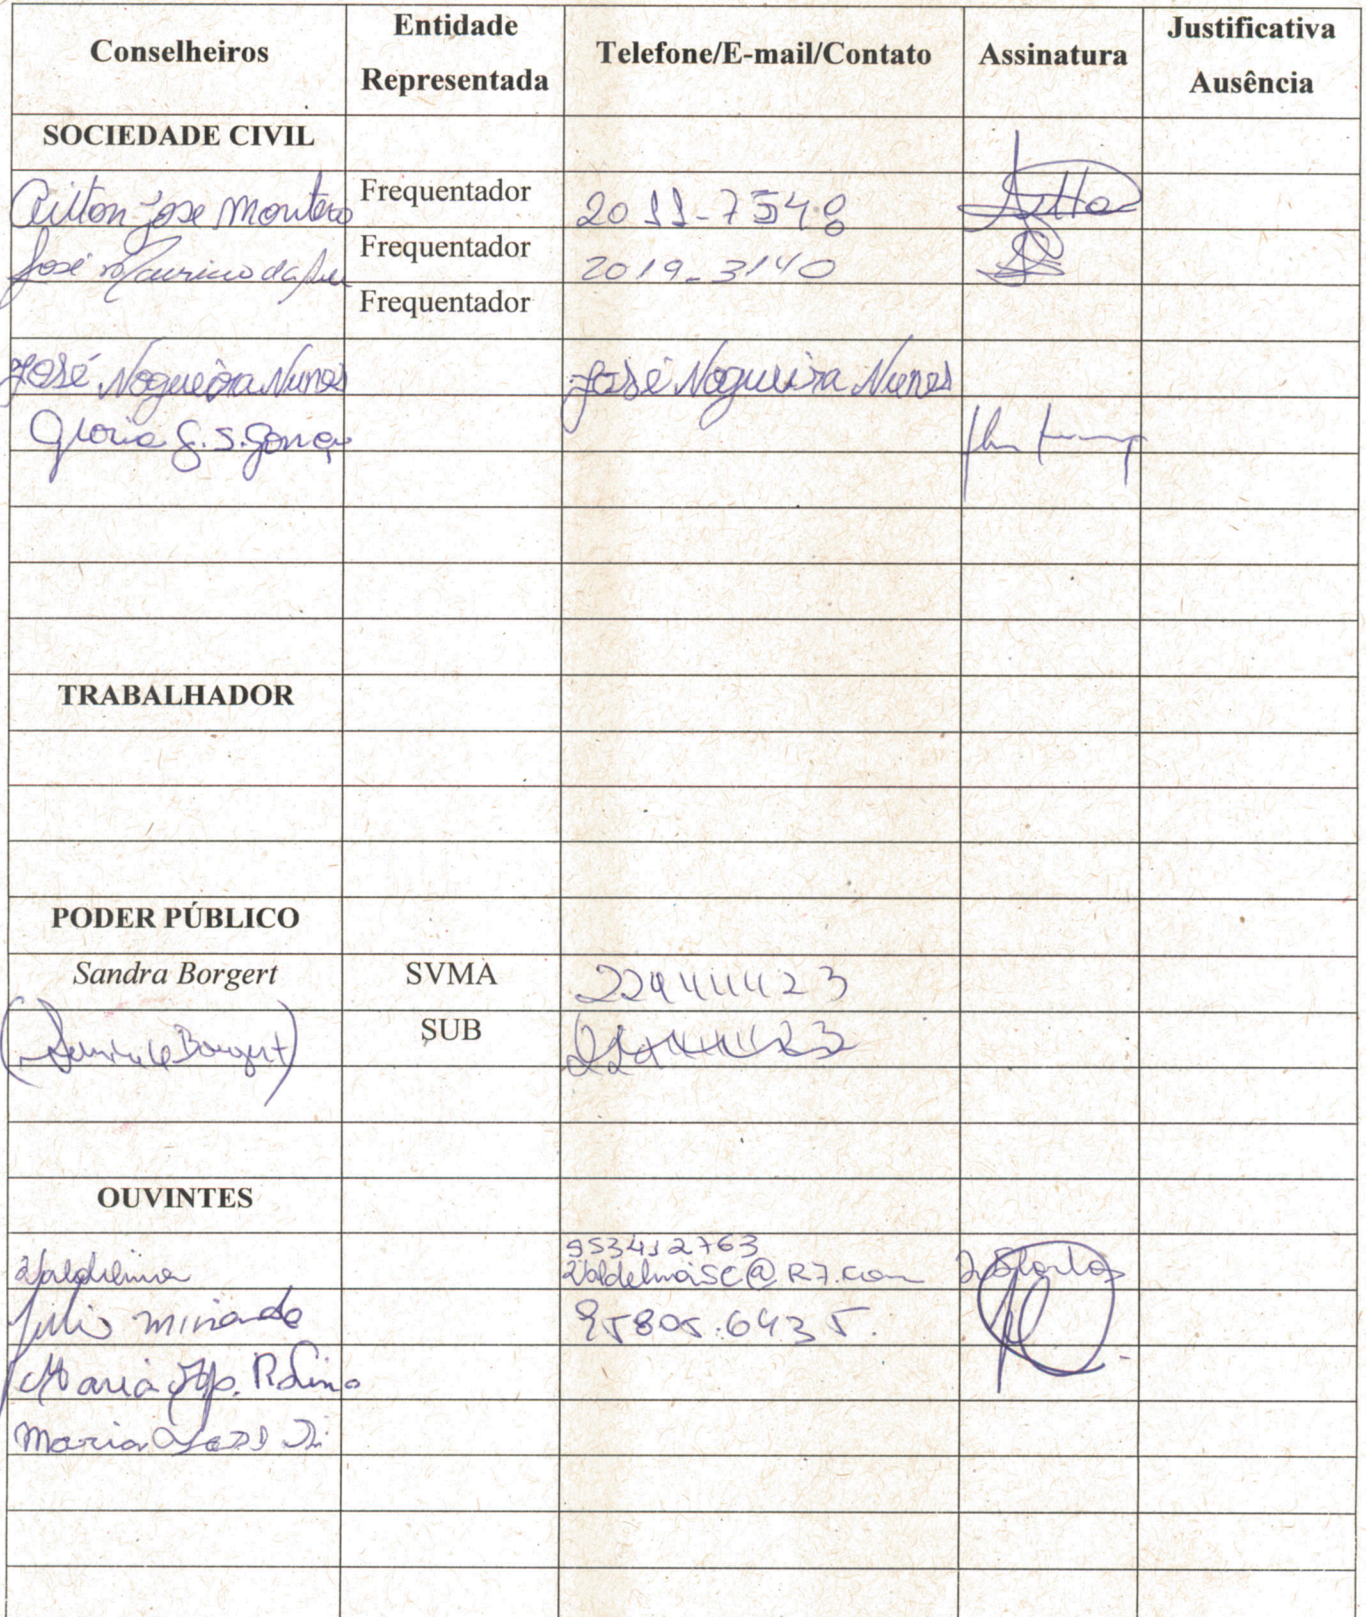 Conselheiros Entidade Representada Telefone/E-mail/Contato Assinatura Justificativa Ausência
SOCIEDADE CIVIL
Ailton Jose Monteiro Frequentador 2011-7548
José Mauricio da Frequentador 2019-3140
Frequentador
José Nogueira Nunes José Nogueira Nunes
Gloria G. S. Gomes
TRABALHADOR
PODER PÚBLICO
Sandra Borgert SVMA 229411423
Borgert) SUB
OUVINTES
953412763
Valdelma ValdelmaSC@R7.com
Julio Miranda 95805.6435.
Maria Ap. R. Lima
Maria